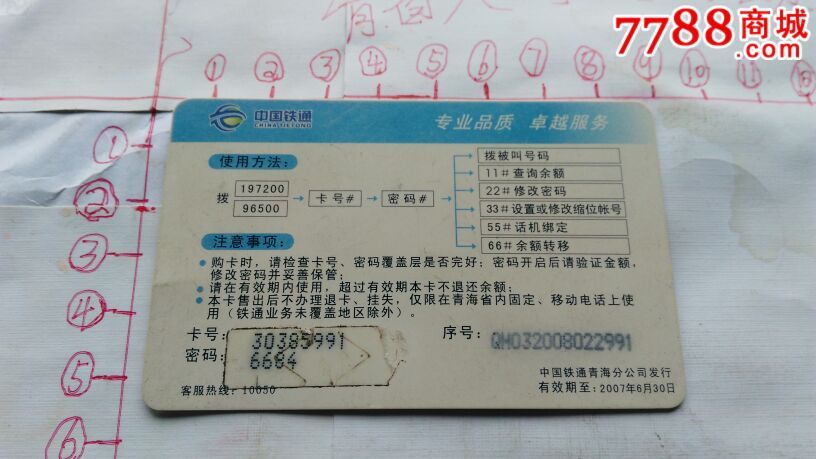 7788商城
.com
① ② ③ ④ ⑤ ⑥ ⑦ ⑧ ⑨ ⑩ ⑪ ⑫
①
②
③
④
⑤
⑥
中国铁通
CHINA TIETONG
专业品质 卓越服务
使用方法:
拨
197200
96500
卡号#
密码#
拨被叫号码
11#查询余额
22#修改密码
33#设置或修改缩位帐号
55#话机绑定
66#余额转移
注意事项:
购卡时，请检查卡号、密码覆盖层是否完好；密码开启后请验证金额，
修改密码并妥善保管；
请在有效期内使用，超过有效期本卡不退还余额；
本卡售出后不办理退卡、挂失，仅限在青海省内固定、移动电话上使
用（铁通业务未覆盖地区除外）。
卡号: 30385991
密码: 6684
序号: QH032008022991
客服热线: 10050
中国铁通青海分公司发行
有效期至:2007年6月30日